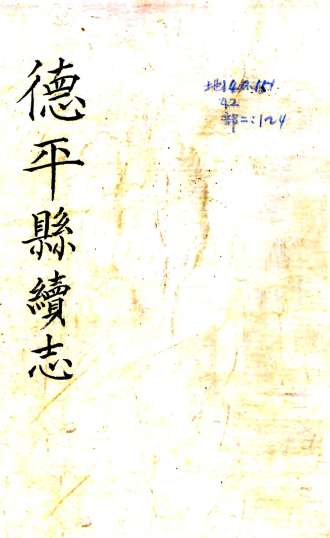 德平縣續志
地140.151
42
部二:124